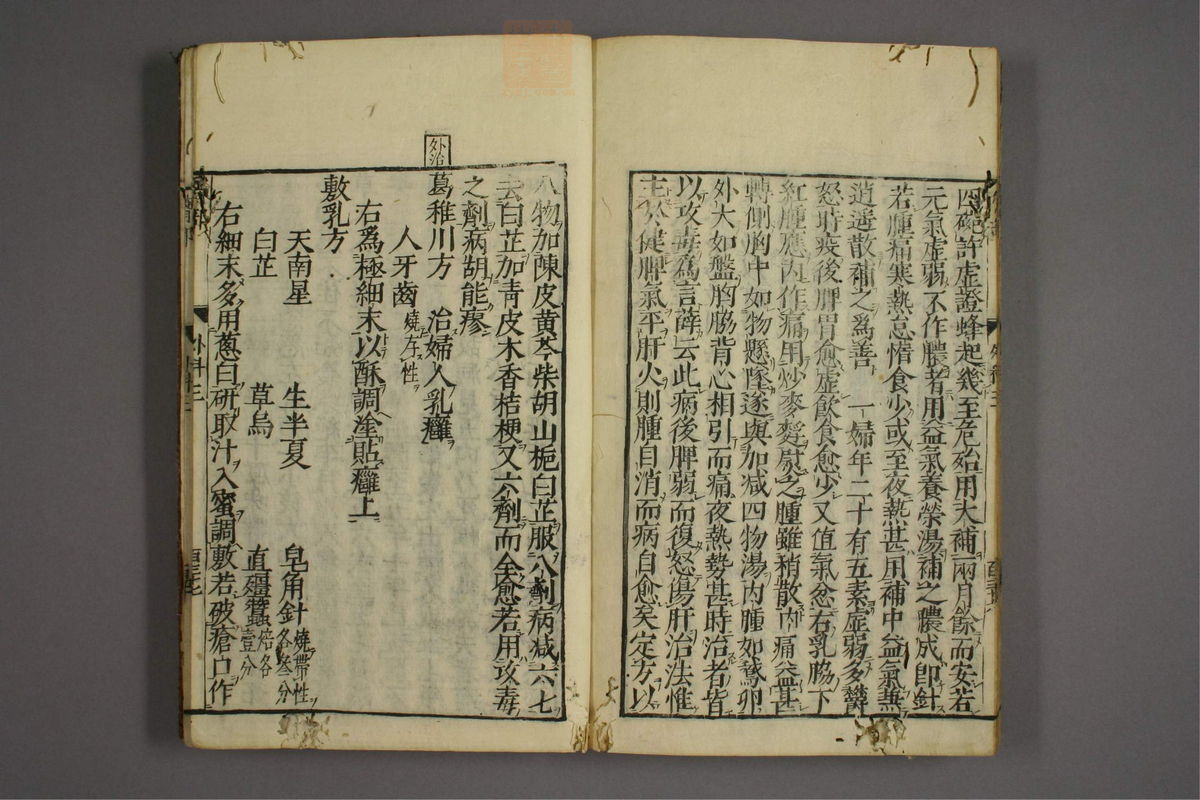 四碗許虛證蜂起幾至危殆用大補兩月餘而安若
元氣虛弱不作膿者用益氣養榮湯補之膿成卽針
若腫痛寒熱怠惰食少或至夜熱甚用補中益氣兼
逍遥散補之爲善 一婦年二十有五素虛弱多鬱
怒時疫後脾胃愈虛飮食愈少又值氣忿右乳脇下
紅腫應內作痛用炒麥麩熨之腫雖稍散內痛益甚
轉側胸中如物懸墜遂與加减四物湯內腫如鵞卵
外大如盤胸脇背心相引而痛夜熱勢甚時治者皆
以攻毒爲言薛云此病後脾弱而復怒傷肝治法惟
主於健脾氣平肝火則腫自消而病自愈矣定方以
八物加陳皮黃芩柴胡山梔白芷服八劑病减六七
去白芷加靑皮木香桔梗又六劑而全愈若用攻毒
之劑病胡能瘳
外治
葛稚川方 治婦人乳癰
人牙齒燒存性
右爲極細末以酥調塗貼癰上
敷乳方
天南星 生半夏 皂角針燒帶性各叄分
白芷 草烏 直殭蠶焙各壹分
右細末多用葱白研取汁入蜜調敷若破瘡口作
外科三